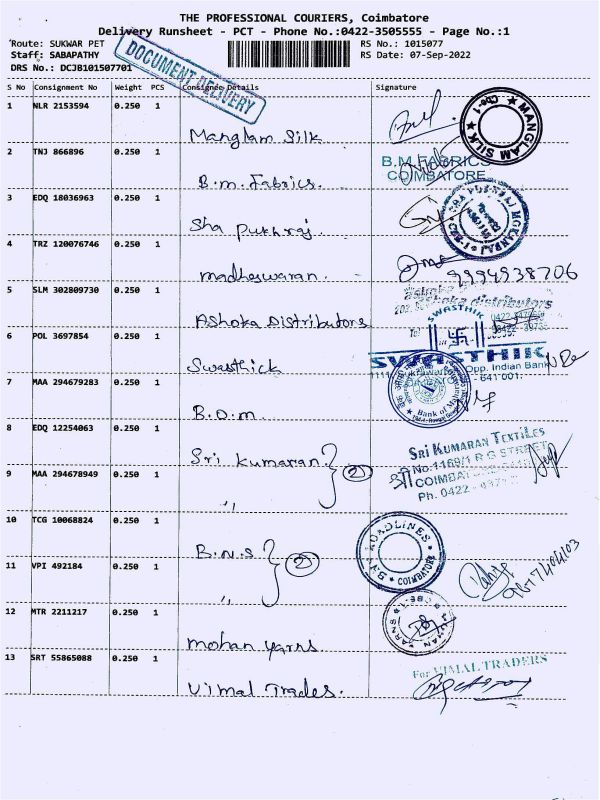 THE PROFESSIONAL COURIERS, Coimbatore
Delivery Runsheet - PCT - Phone No.:0422-3505555 - Page No.:1
Route: SUKWAR PET
RS No.: 1015077
Staff: SABAPATHY
RS Date: 07-Sep-2022
DRS No.: DCJB101507701
DOCUMENT DELIVERY
S No Consignment No Weight PCS Consignee Details Signature
1 NLR 2153594 0.250 1
Manglam Silk
MANGLAM SILK
Cbe-1
2 TNJ 866896 0.250 1
B.m. Fabrics.
B.M FABRICS
COIMBATORE
3 EDQ 18036963 0.250 1
Sha Pukhraj.
4 TRZ 120076746 0.250 1
madheswaran.
9994938706
5 SLM 302809730 0.250 1
Ashoka Distributors
Ashoka distributors
6 POL 3697854 0.250 1
Swasthick
SWASTHIK
SWASTHIK
Opp. Indian Bank
- 641 001.
7 MAA 294679283 0.250 1
B.O.M.
Bank of
8 EDQ 12254063 0.250 1
Sri Kumaran
2
SRI KUMARAN TEXTILES
No.1169/1 R G STREET
COIMBAT
Ph. 0422 -
9 MAA 294678949 0.250 1
"
10 TCG 10068824 0.250 1
B.N.S
2
ROADLINES
COIMBATORE
11 VPI 492184 0.250 1
"
12 MTR 2211217 0.250 1
mohan yarns
YARNS
13 SRT 55865088 0.250 1
Vimal Trades.
For VIMAL TRADERS